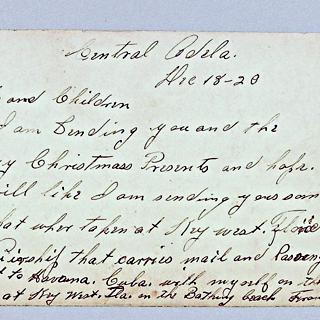 Central Adela.
Dec 18-20
and Children
I am Sending you and the
y Christmass Presents and hope.
ill like I am sending you som
at wher taken at Key west. Flori
that carries mail and Passeng
t to Havana. Cuba. with myself on th
at Key West. Fla. on the Bathing beach